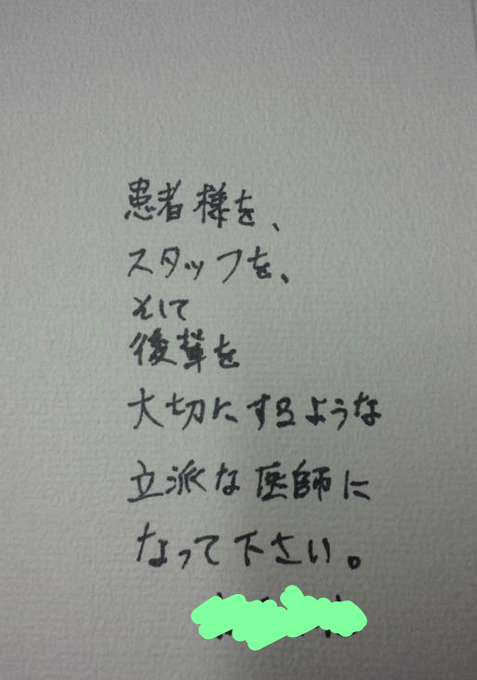 患者様を、
スタッフを、
そして
後輩を
大切にするような
立派な医師に
なって下さい。